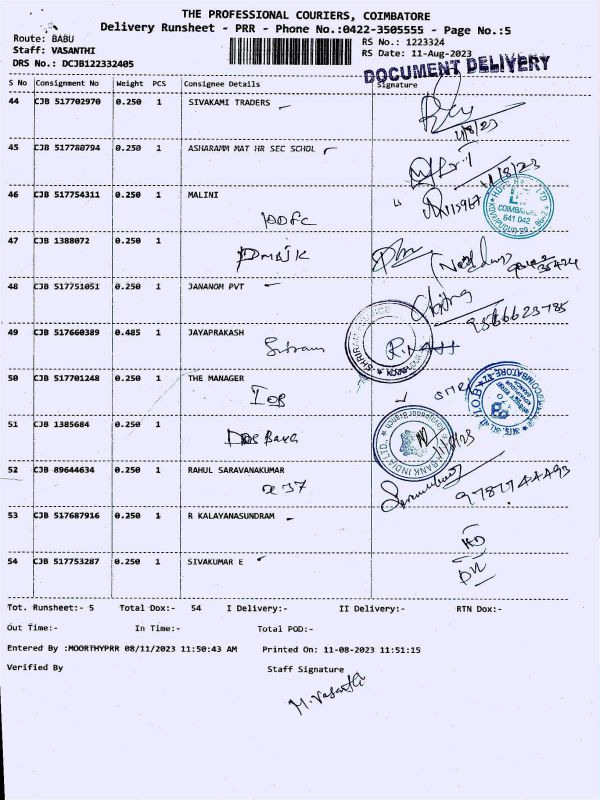 THE PROFESSIONAL COURIERS, COIMBATORE
Delivery Runsheet - PRR - Phone No.:0422-3505555 - Page No.:5
Route: BABU
Staff: VASANTHI
DRS No.: DCJB122332405
RS No.: 1223324
RS Date: 11-Aug-2023
DOCUMENT DELIVERY
S No Consignment No Weight PCS Consignee Details Signature
44 CJB 517702970 0.250 1 SIVAKAMI TRADERS
11/8/23
45 CJB 517780794 0.250 1 ASHARAMM MAT HR SEC SCHOL
11/8/23
46 CJB 517754311 0.250 1 MALINI
HDFC
COIMBATORE
641 042
47 CJB 1388072 0.250 1
48 CJB 517751051 0.250 1 JANANOM PVT
49 CJB 517660389 0.485 1 JAYAPRAKASH
50 CJB 517701248 0.250 1 THE MANAGER
IOB
51 CJB 1385684 0.250 1
DBS Bank
11/8/23
52 CJB 89644634 0.250 1 RAHUL SARAVANAKUMAR
53 CJB 517687916 0.250 1 R KALAYANASUNDRAM
54 CJB 517753287 0.250 1 SIVAKUMAR E
Tot. Runsheet:- 5 Total Dox:- 54 I Delivery:- II Delivery:- RTN Dox:-
Out Time:- In Time:- Total POD:-
Entered By :MOORTHYPRR 08/11/2023 11:50:43 AM Printed On: 11-08-2023 11:51:15
Verified By Staff Signature
M. Vasanthi